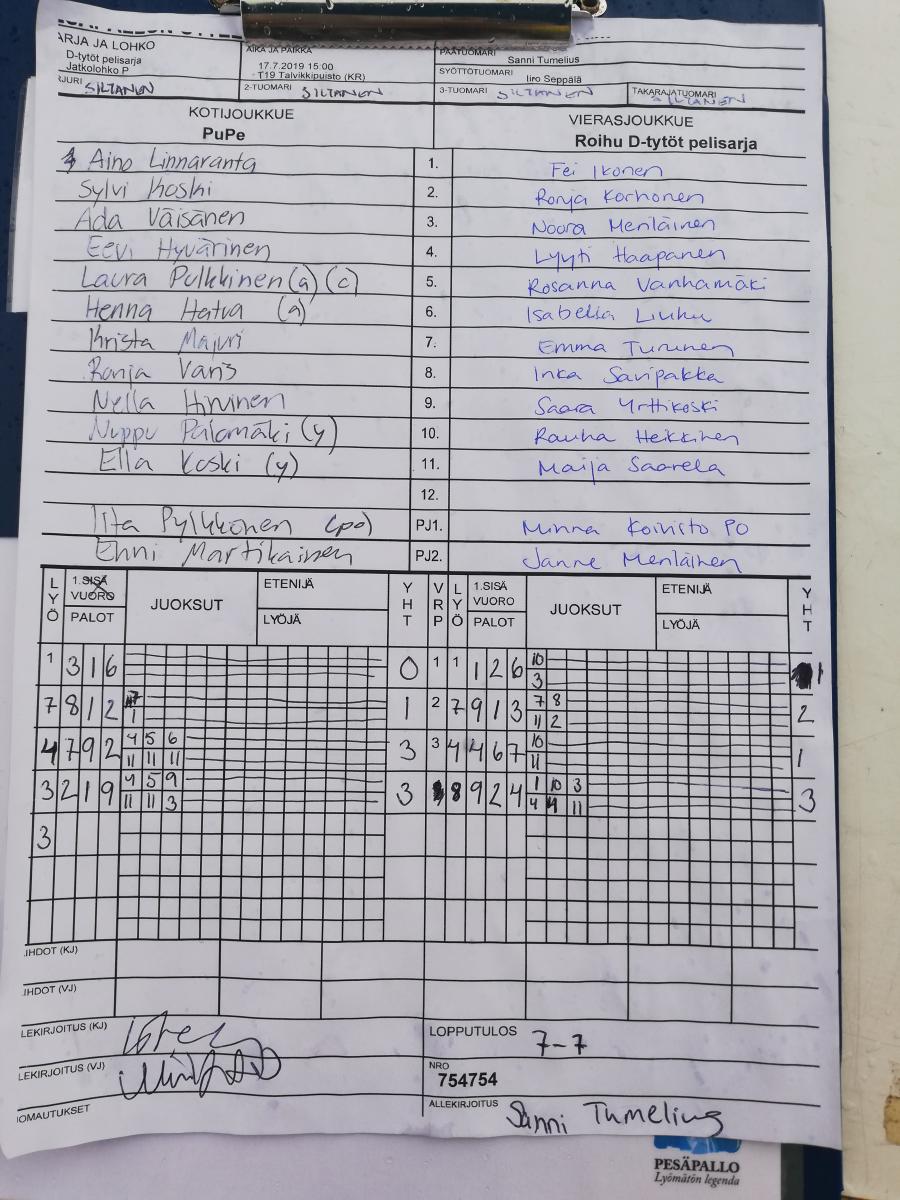 ARJA JA LOHKO
D-tytöt pelisarja
Jatkolohko P
AIKA JA PAIKKA
17.7.2019 15:00
T19 Talvikkipuisto (KR)
PÄÄTUOMARI
Sanni Tumelius
SYÖTTÖTUOMARI
Iiro Seppälä
SILTANEN
2-TUOMARI SILTANEN
3-TUOMARI SILTANEN
TAKARAJATUOMARI SILTANEN
KOTIJOUKKUE
PuPe
VIERASJOUKKUE
Roihu D-tytöt pelisarja
Aino Linnaranta 1. Fei Ikonen
Sylvi Koski 2. Ronja Korhonen
Ada Väisänen 3. Noora Meriläinen
Eevi Hyvärinen 4. Lyyti Haapanen
Laura Pulkkinen (a) (c) 5. Rosanna Vanhamäki
Henna Hatva (a) 6. Isabella Liuku
Krista Majuri 7. Emma Turunen
Ronja Varis 8. Inka Saripakka
Nella Hirvinen 9. Saara Yrttikoski
Nuppu Palomäki (y) 10. Rauha Heikkinen
Ella Koski (y) 11. Maija Saarela
12.
Iita Pylkkönen (po) PJ1. Minna Koivisto PO
Enni Martikainen PJ2. Janne Meriläinen
LYÖ 1.SISÄ VUORO PALOT JUOKSUT ETENIJÄ LYÖJÄ YHT VRP LYÖ 1.SISÄ VUORO PALOT JUOKSUT ETENIJÄ LYÖJÄ YHT
1 3 1 6 0 1 1 1 2 6 10 1
3
7 8 1 2 7 1 2 7 9 1 3 7 8 2
1 11 2
4 7 9 2 4 5 6 3 3 4 4 6 7 10 1
11 11 11 11
3 2 1 9 4 5 9 3 8 9 2 4 1 10 3 3
11 11 3 4 4 11
3
IHDOT (KJ)
IHDOT (VJ)
LEKIRJOITUS (KJ)
LOPPUTULOS 7-7
LEKIRJOITUS (VJ)
NRO
754754
IOMAUTUKSET
ALLEKIRJOITUS Sanni Tumelius
PESÄPALLO
Lyömätön legenda